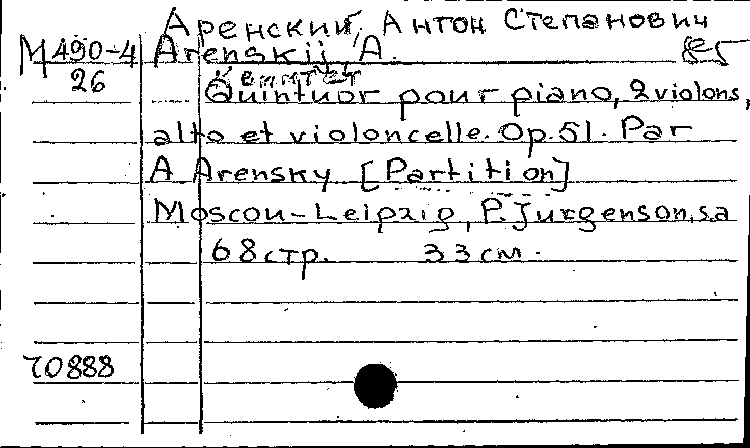 Аренский, Антон Степанович
М490-4 Arenskij, A. 85
26 Квинтет
Quintuor pour piano, 2 violons,
alto et violoncelle. Op. 51. Par
A. Arensky [Partition]
Moscou-Leipzig, P. Jurgenson, s.a
68 стр. 33 см.
70888